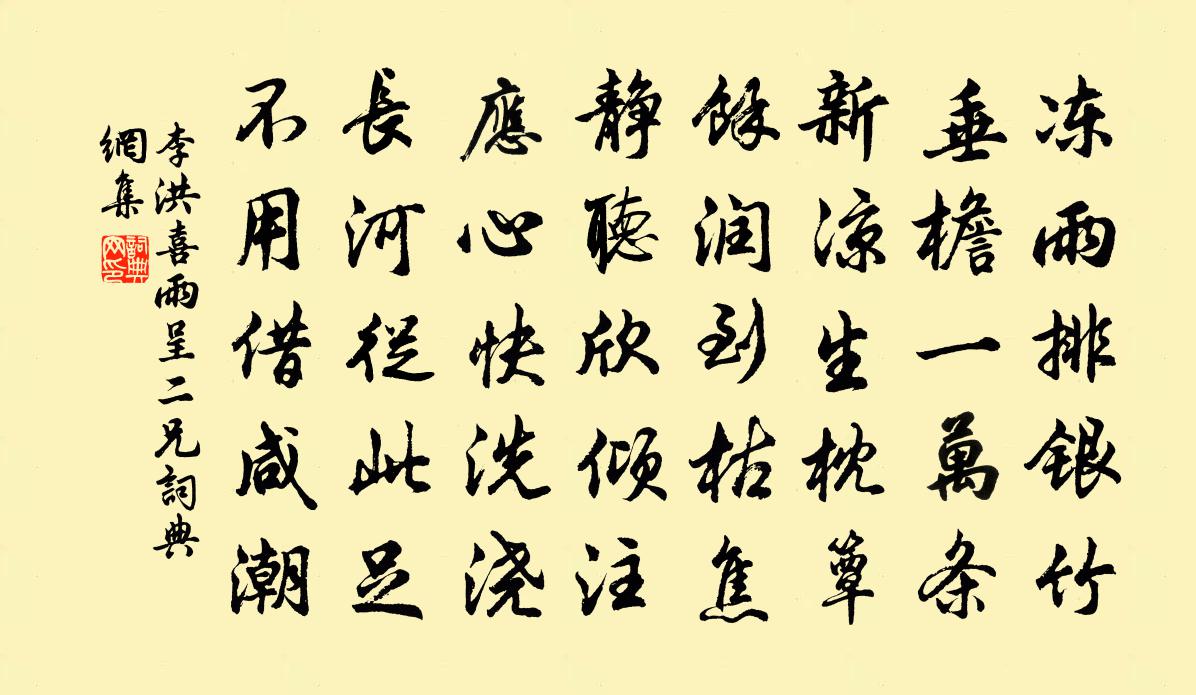 冻雨排银竹
垂檐一萬条
新凉生枕簟
餘润到枯焦
静聽欣倾注
應心快洗浇
長河從此足
不用借咸潮
李洪喜雨呈二兄詞典
網集
詞典网印